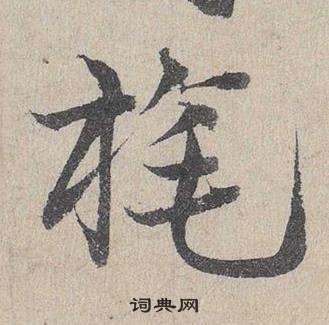 旄
词典网